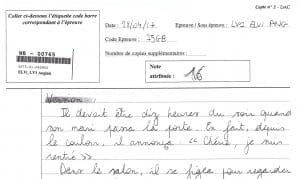 Copie n° 2 - UAC
Coller ci-dessous l'étiquette code barre
correspondant à l'épreuve
Date : 28/04/17
Epreuve / Sous épreuve : LV1 ELVI ANG
Code Epreuve : 75GB
Nombre de copies supplémentaires :
NB - 00745
ELVI, LV1 Anglais
Note
attribuée : 16
Version :
Il devait être dix heures du soir quand
son mari passa la porte. En fait, depuis
le couloir, il annonça « Chérie, je suis
rentré ».
Dans le salon, il se figea pour regarder